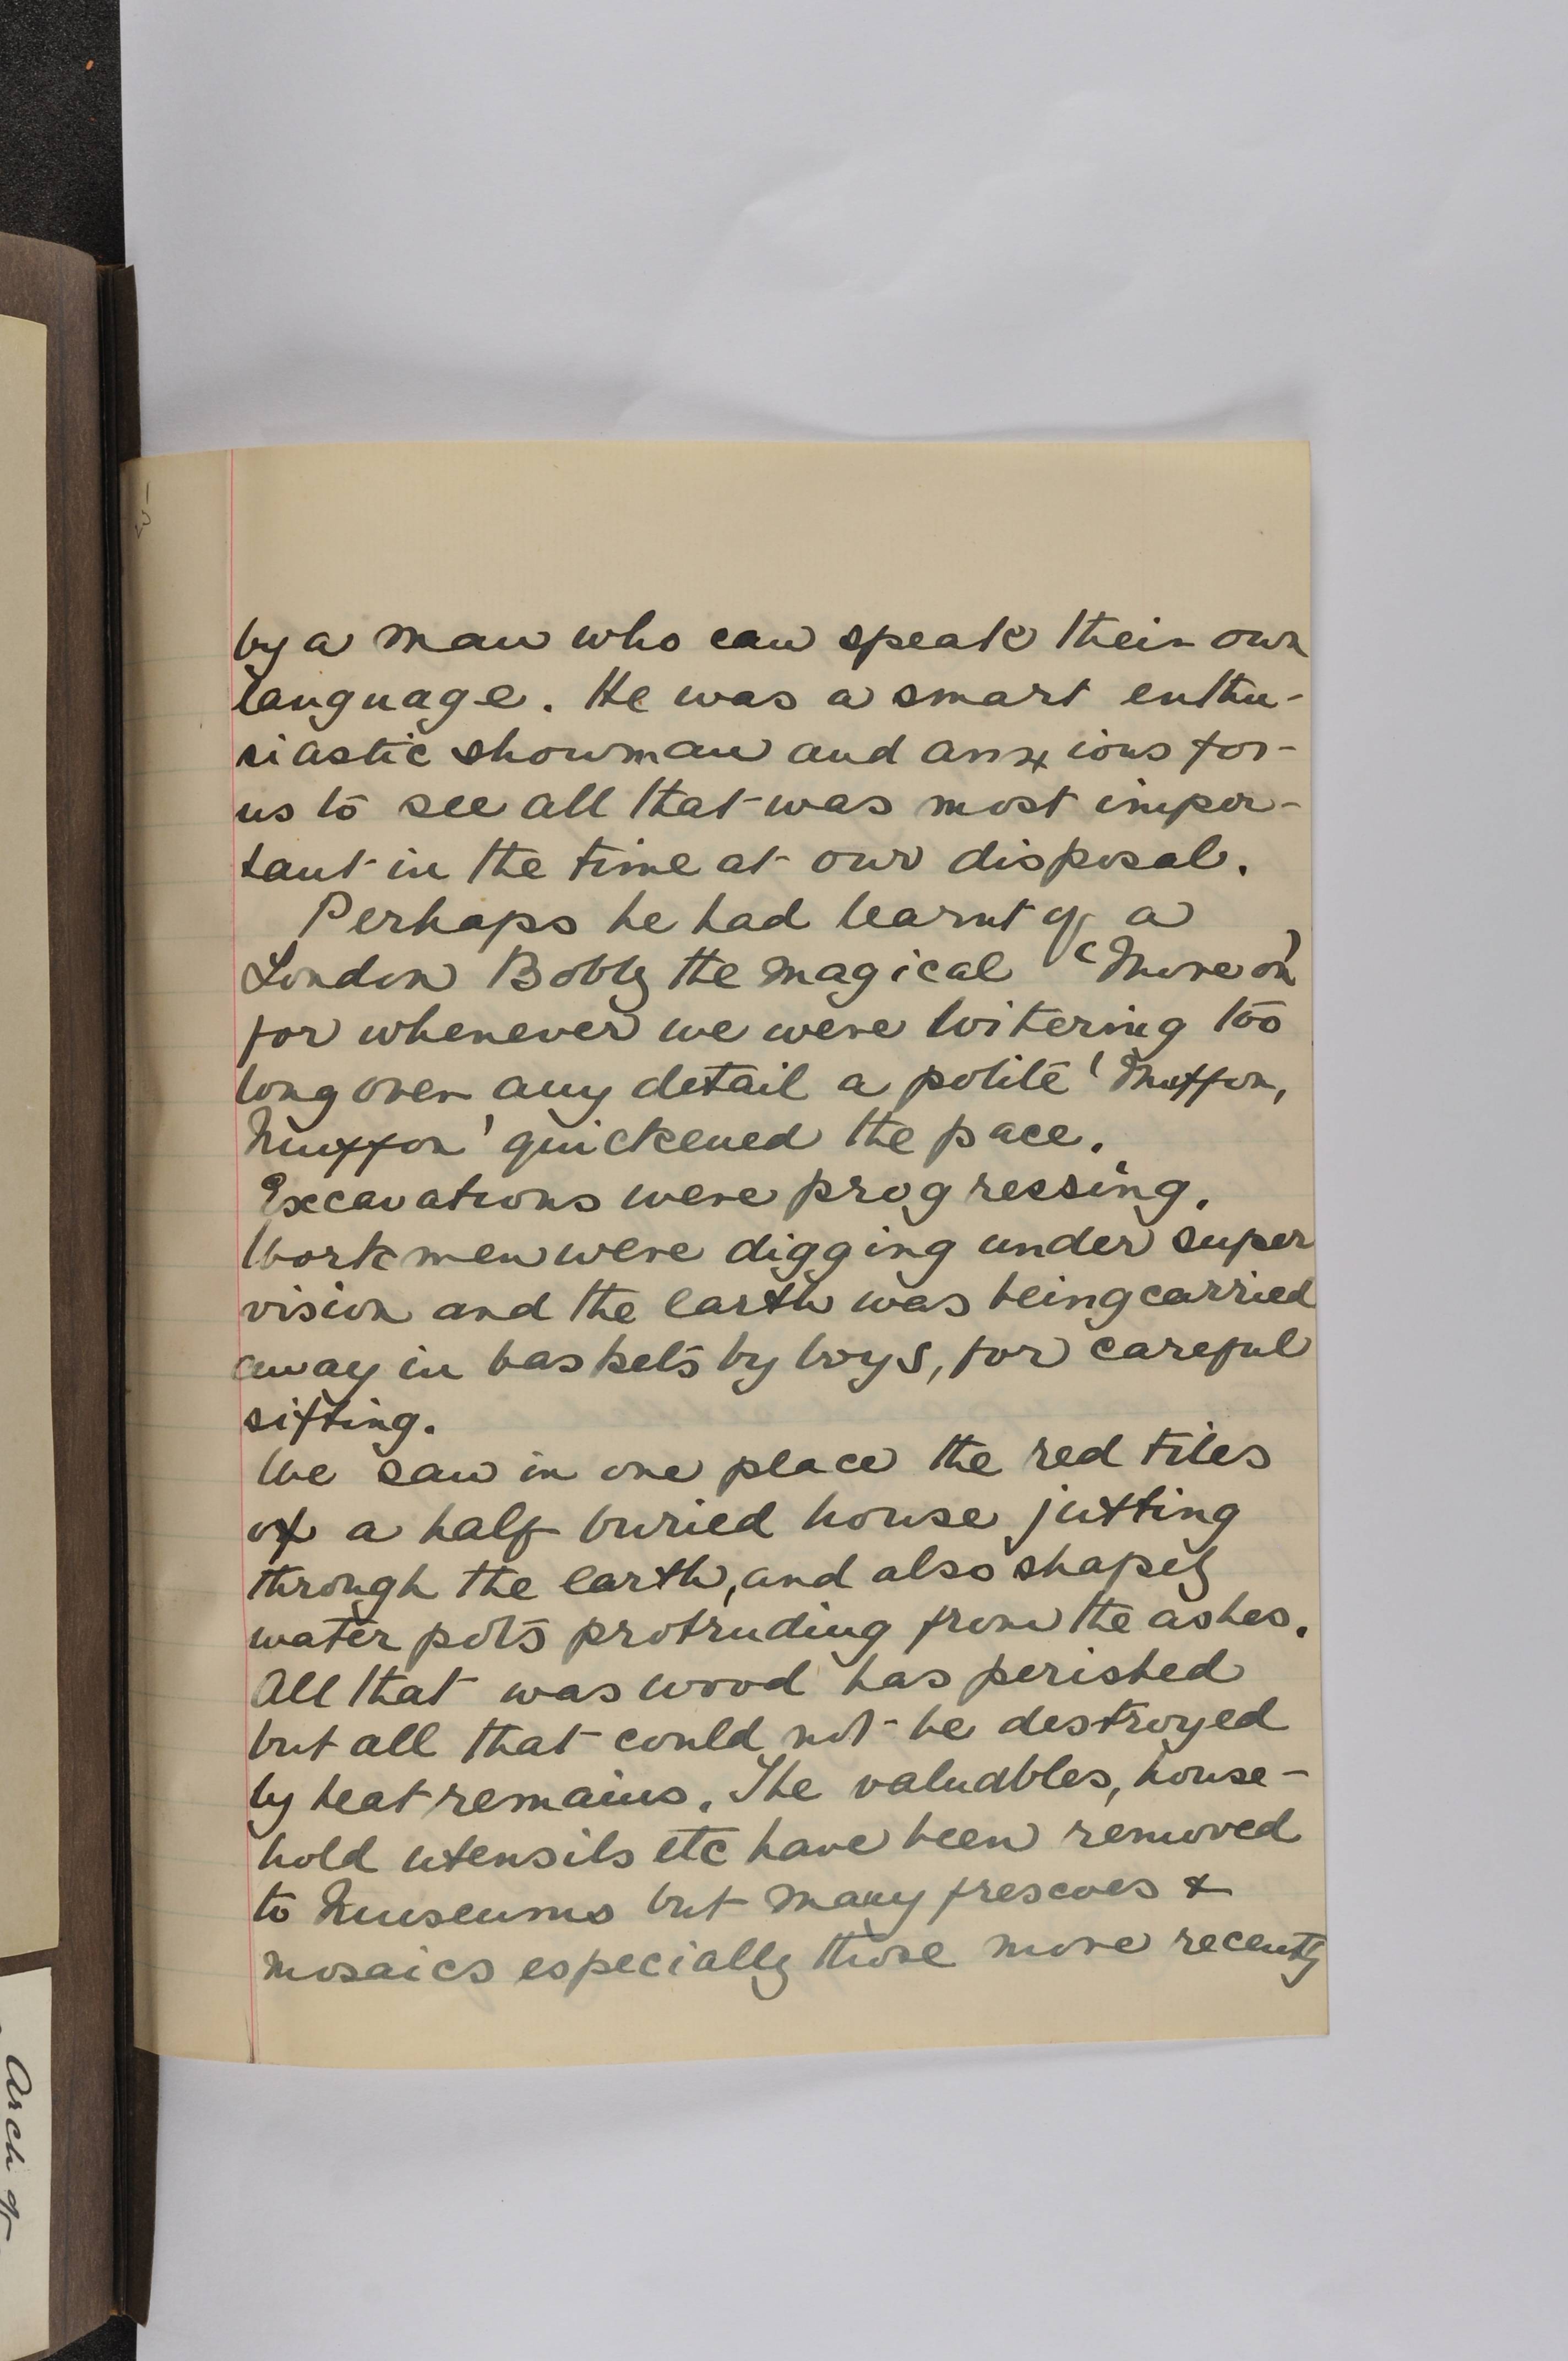 by a man who can speak their own
language. He was a smart enthu-
siastic showman and anxious for
us to see all that was most impor-
tant in the time at our disposal.
Perhaps he had learnt of a
London Bobby the magical 'Move on'
for whenever we were loitering too
long over any detail a polite 'Muffon,
Muffon' quickened the pace.
Excavations were progressing.
Workmen were digging under super
vision and the earth was being carried
away in baskets by boys, for careful
sifting.
We saw in one place the red tiles
of a half buried house jutting
through the earth, and also shapely
water pots protruding from the ashes.
All that was wood has perished
but all that could not be destroyed
by heat remains. The valuables, house-
hold utensils etc have been removed
to Museums but many frescoes &
mosaics especially those more recently
Arch of